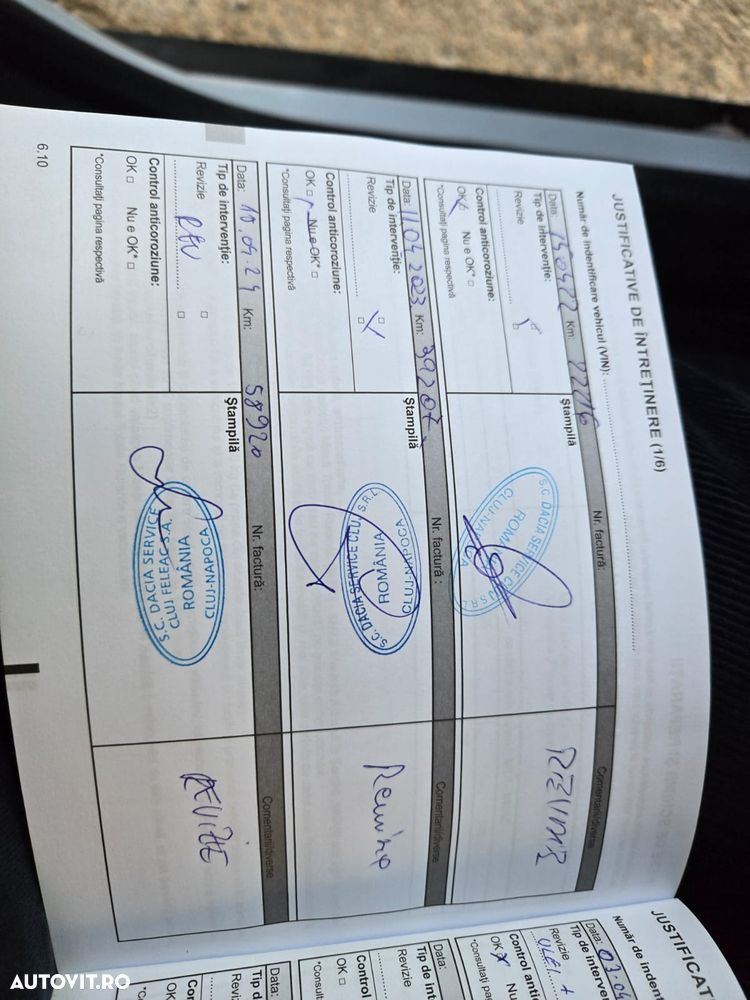 JUSTIFICATIVE DE ÎNTREȚINERE (1/6)
Număr de indentificare vehicul (VIN):
Data: Km: 22216 Nr. factură: Comentarii/diverse
Tip de intervenție: Ștampilă
Revizie
Control anticoroziune:
OK Nu e OK* □
*Consultați pagina respectivă
S.C. DACIA SERVICE CLUJ S.R.L
ROMÂNIA
CLUJ-NAPOCA
REVIZIE
Data: 11.04.2023 Km: 39207 Nr. factură: Comentarii/diverse
Tip de intervenție: Ștampilă
Revizie □
□
Control anticoroziune:
OK □ Nu e OK* □
*Consultați pagina respectivă
S.C. DACIA SERVICE CLUJ S.R.L
ROMÂNIA
CLUJ-NAPOCA
Revizie
Data: 10.04.24 Km: 58920 Nr. factură: Comentarii/diverse
Tip de intervenție: Ștampilă
Revizie □
REV □
Control anticoroziune:
OK □ Nu e OK* □
*Consultați pagina respectivă
S.C. DACIA SERVICE
CLUJ FELEAC S.A.
ROMÂNIA
CLUJ-NAPOCA
REVIZIE
6.10
JUSTIFICAT
Număr de inden
Data: 03.0
Tip de interve
Revizie
ULEI +
Control anti
OK Nu
*Consultați
Data:
Tip de int
Revizie
Control
OK □
*Consultaț
Data:
Tip d
Revizie
Cont
OK
AUTOVIT.RO